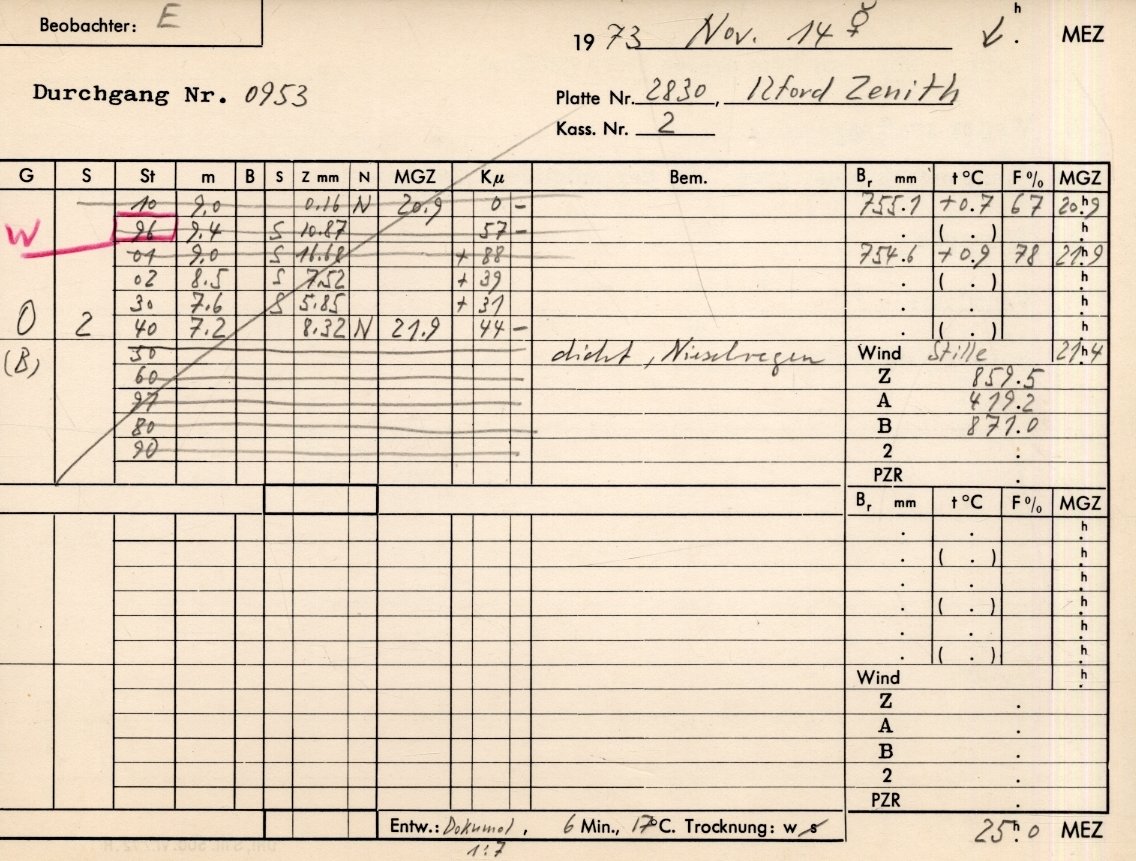 Beobachter: E
1973 Nov. 14 ☿ ✓ . h MEZ
Durchgang Nr. 0953
Platte Nr. 2830, Ilford Zenith
Kass. Nr. 2
G S St m B S Z mm N MGZ Kμ Bem. Br mm t °C F % MGZ
10 9.0 0.16 N 20.9 0 - 755.1 +0.7 67 20h9
W 96 9.4 S 10.87 57 - . ( . ) h
01 9.0 S 16.68 + 88 754.6 +0.9 78 21h9
02 8.5 S 7.52 + 39 . ( . ) h
30 7.6 S 5.85 + 31 . . h
O 2 40 7.2 8.32 N 21.9 44 - . ( . ) h
(B) 50 dicht, Nieselregen Wind Stille 21h4
60 Z 859.5
97 A 419.2
80 B 871.0
90 2 .
PZR .
Br mm t °C F % MGZ
. . h
. ( . ) h
. . h
. ( . ) h
. . h
. ( . ) h
Wind h
Z .
A .
B .
2 .
PZR .
Entw.: Dokumol, 6 Min., 17°C. Trocknung: w s 25h0 MEZ
1:7